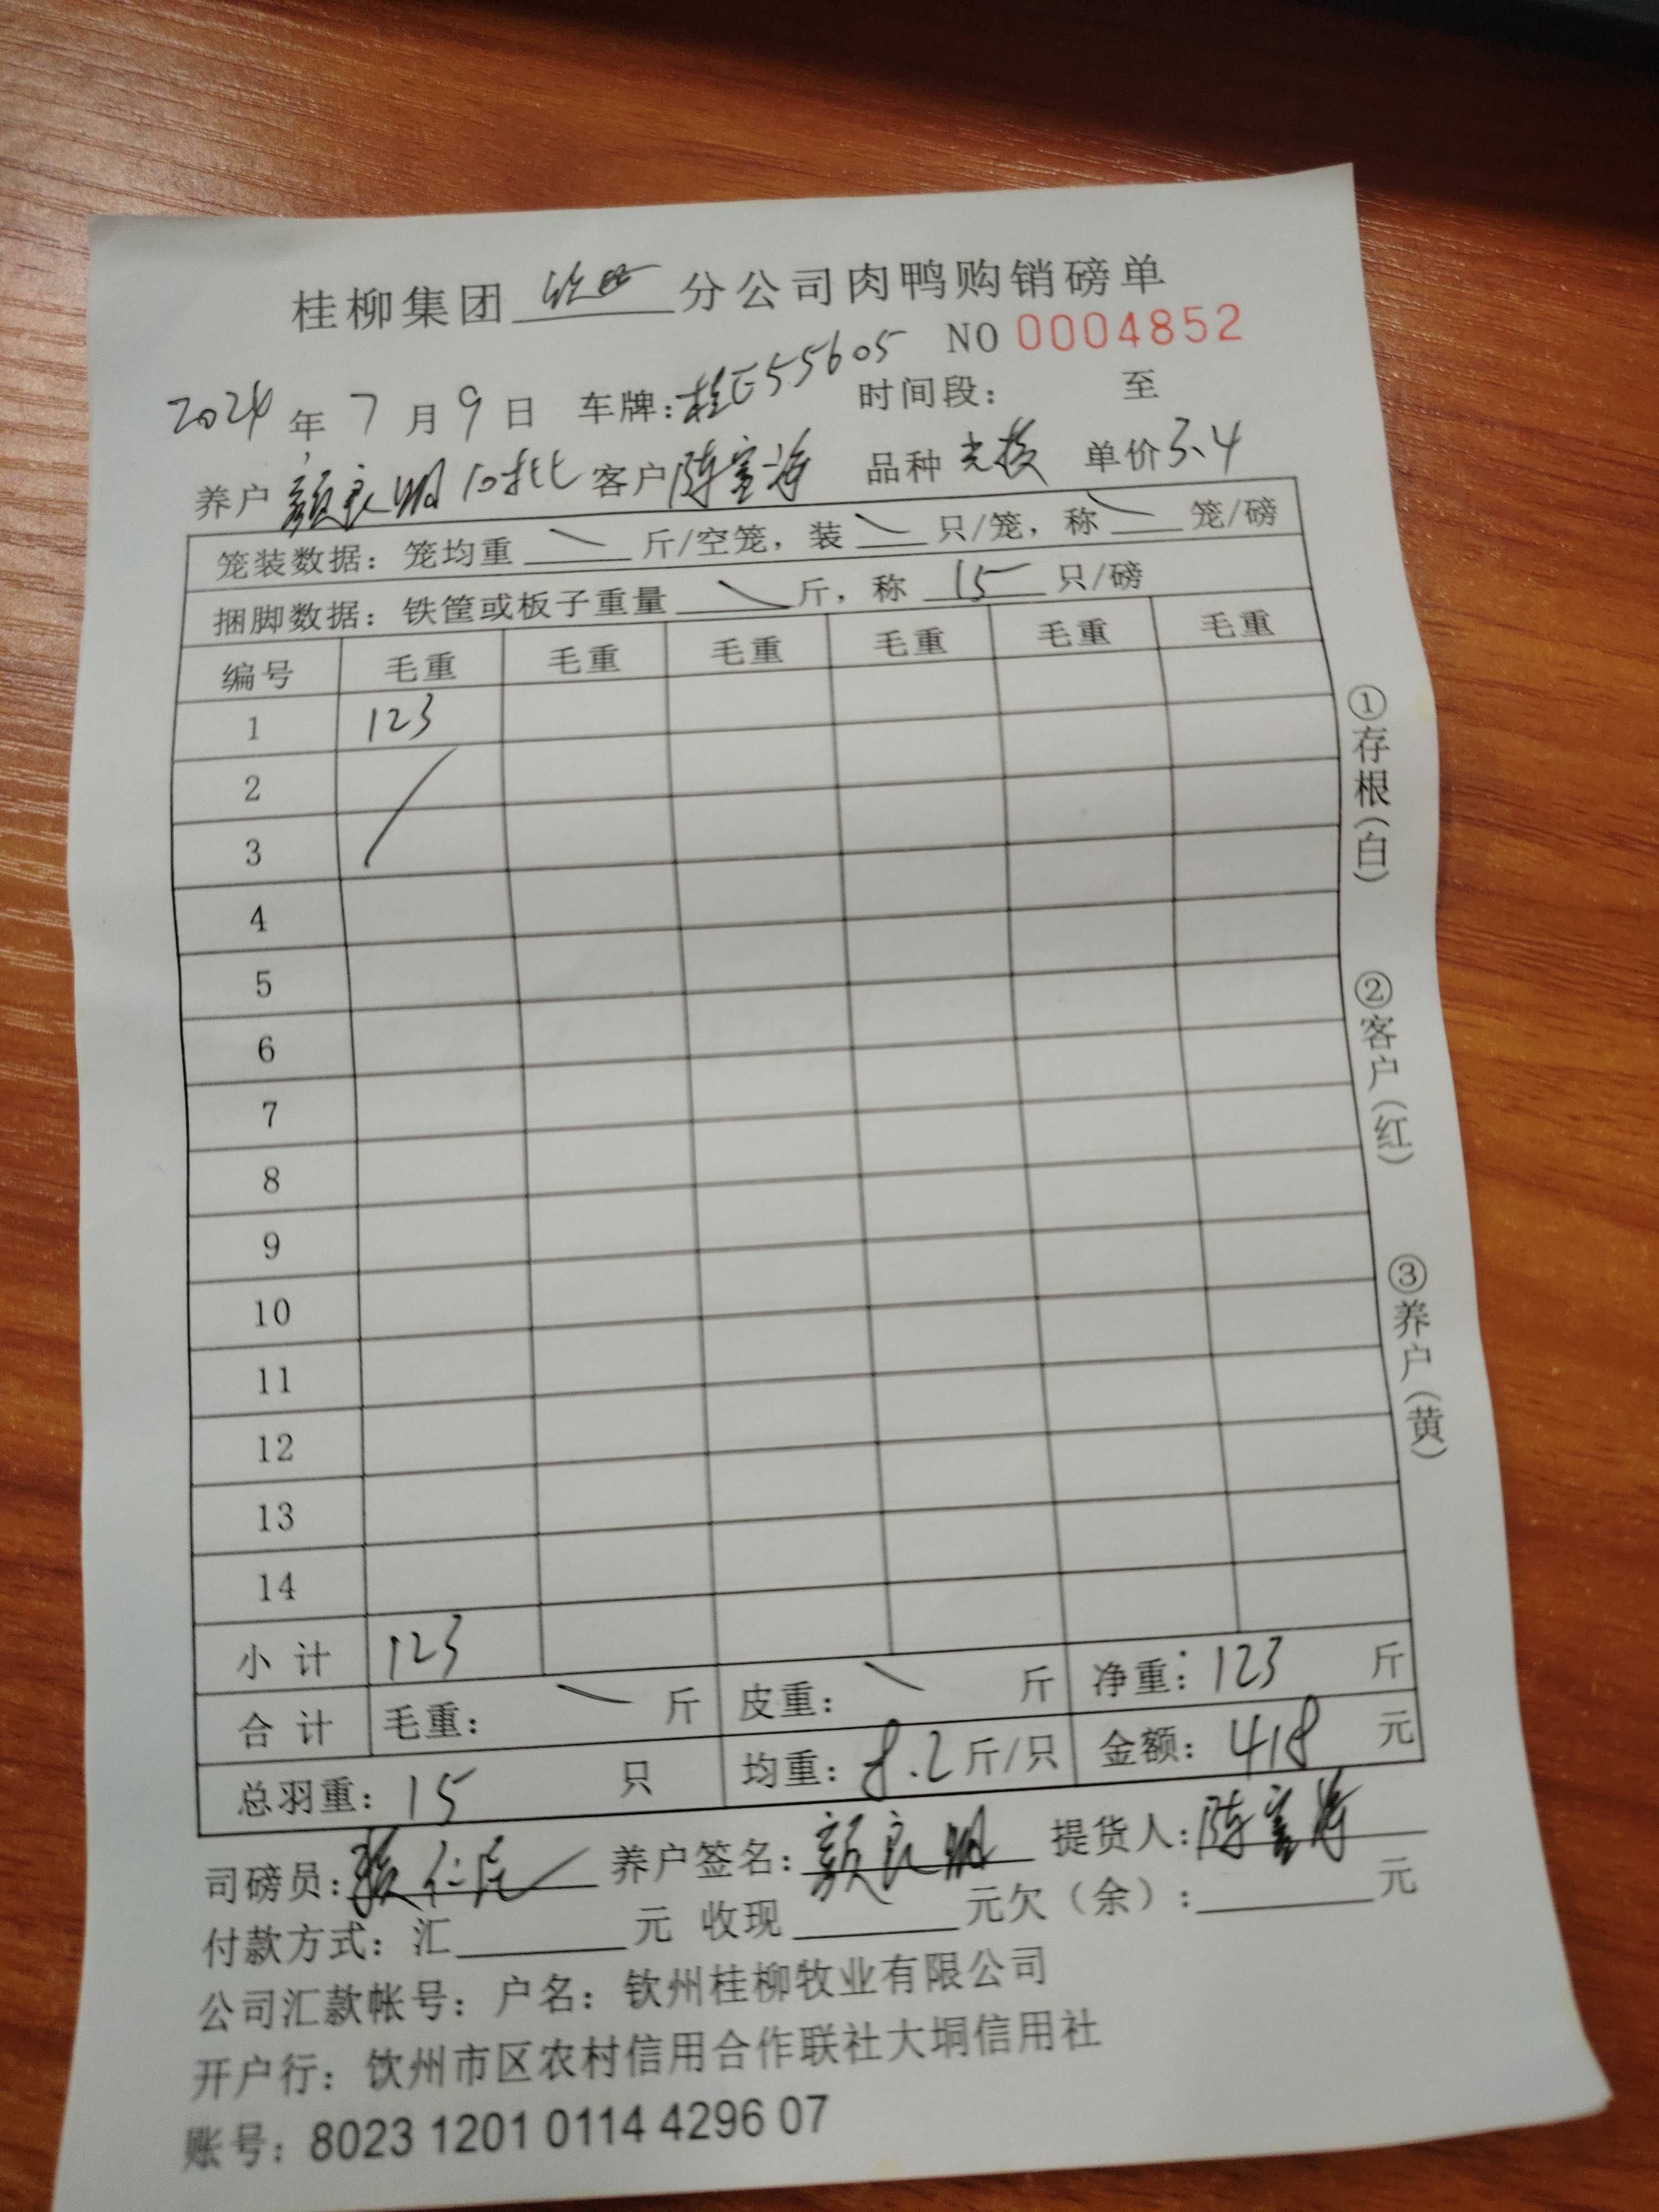 桂柳集团 分公司肉鸭购销磅单
NO 0004852
2024 年 7 月 9 日 车牌:桂E55605 时间段: 至
养户 颜良明 10批 客户 陈富海 品种 单价 3.4
笼装数据: 笼均重 \ 斤/空笼, 装 \ 只/笼, 称 \ 笼/磅
捆脚数据: 铁筐或板子重量 \ 斤, 称 15 只/磅
编号 毛重 毛重 毛重 毛重 毛重 毛重
1 123
2
3
4
5
6
7
8
9
10
11
12
13
14
小计 123
合计 毛重: \ 斤 皮重: \ 斤 净重: 123 斤
总羽重: 15 只 均重: 8.2 斤/只 金额: 418 元
司磅员: 养户签名: 颜良明 提货人: 陈富海
付款方式: 汇 元 收现 元欠(余): 元
公司汇款帐号: 户名: 钦州桂柳牧业有限公司
开户行: 钦州市区农村信用合作联社大垌信用社
账号: 8023 1201 0114 4296 07
①存根(白)
②客户(红)
③养户(黄)